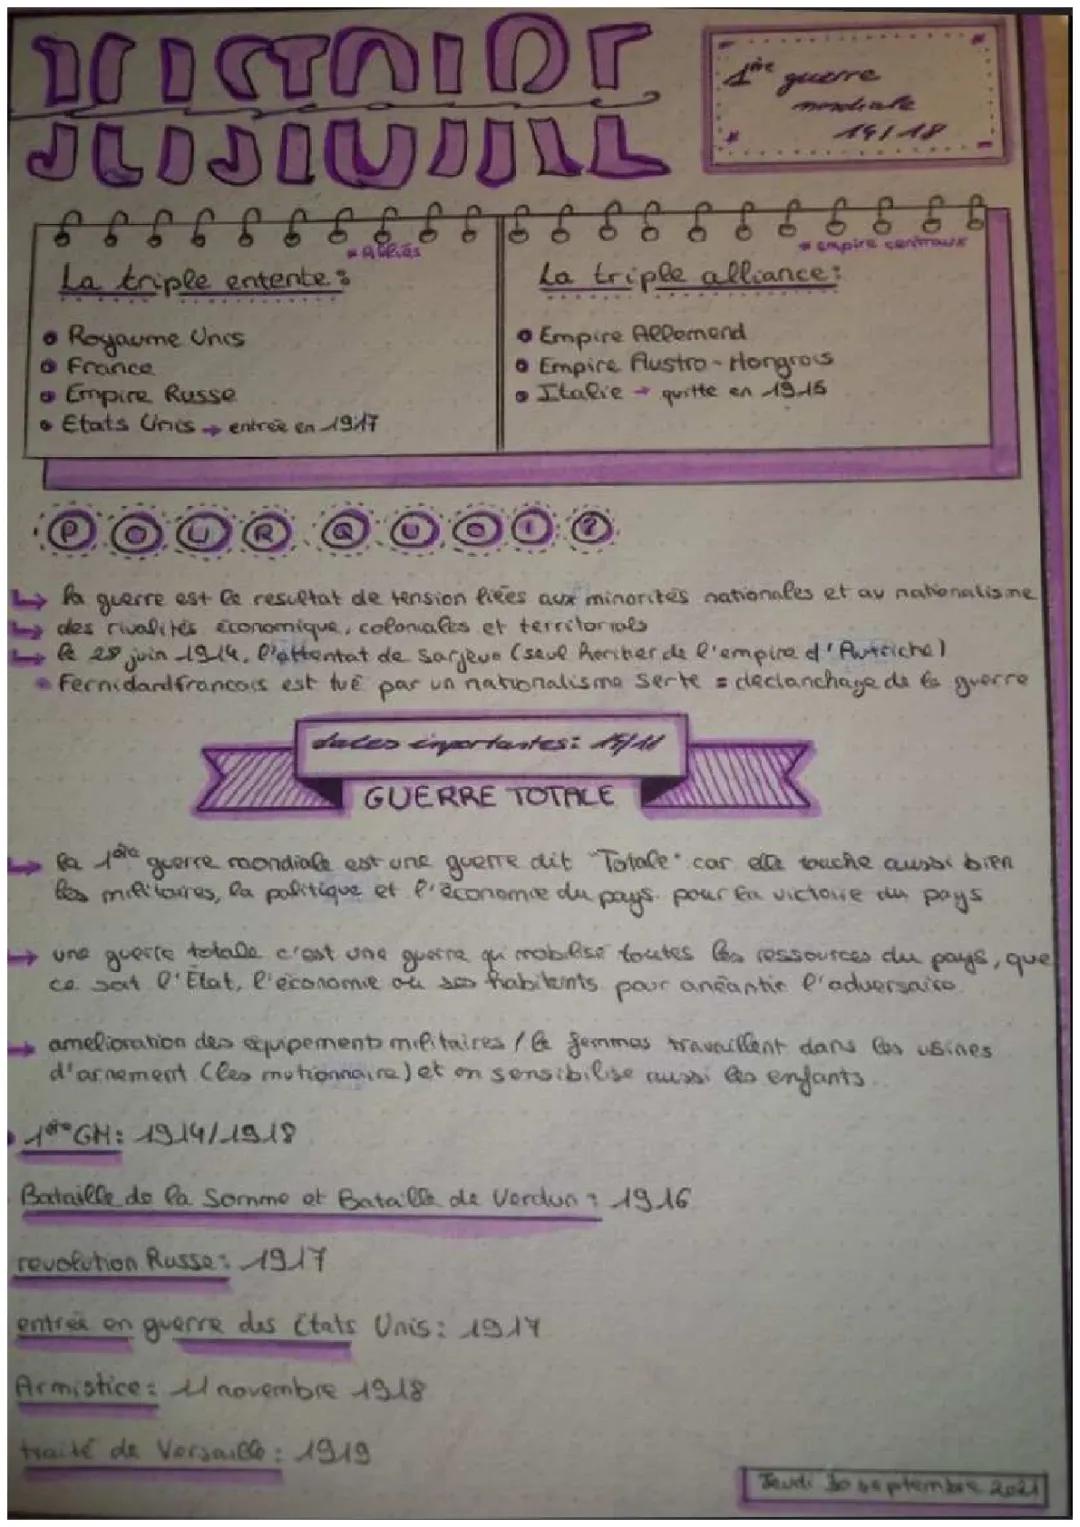 HISTOIRE
1ère guerre
mondiale
14/18
* Alliés
* empire centraux
La triple entente :
La triple alliance :
Royaume Unis
France
Empire Russe
Etats Unis → entrée en 1917
Empire Allemand
Empire Austro-Hongrois
Italie → quitte en 1915
POURQUOI?
↳ la guerre est le resultat de tension liées aux minorités nationales et au nationalisme
↳ des rivalités économique, coloniales et territorials
↳ le 28 juin 1914, l'attentat de Sarjevo (seul heritier de l'empire d'Autriche)
Fernidandfrancois est tué par un nationalisme Serte = declanchage de la guerre
dates importantes: 14/18
GUERRE TOTALE
→ la 1ère guerre mondiale est une guerre dit "Totale" car elle touche aussi bien
les militaires, la politique et l'économie du pays. pour la victoire du pays
→ une guerre totale c'est une guerre qui mobilise toutes les ressources du pays, que
ce soit l'État, l'économie ou ses habitants pour anéantir l'adversaire.
→ amelioration des équipements militaires / le femmes travaillent dans les usines
d'armement (les mutionnaire) et on sensibilise aussi les enfants..
1ère GM: 1914/1918
Bataille de la Somme et Bataille de Verdun : 1916
revolution Russe: 1917
entrée en guerre des États Unis: 1917
Armistice: 11 novembre 1918
traité de Versaille: 1919
Jeudi 30 septembre 2021